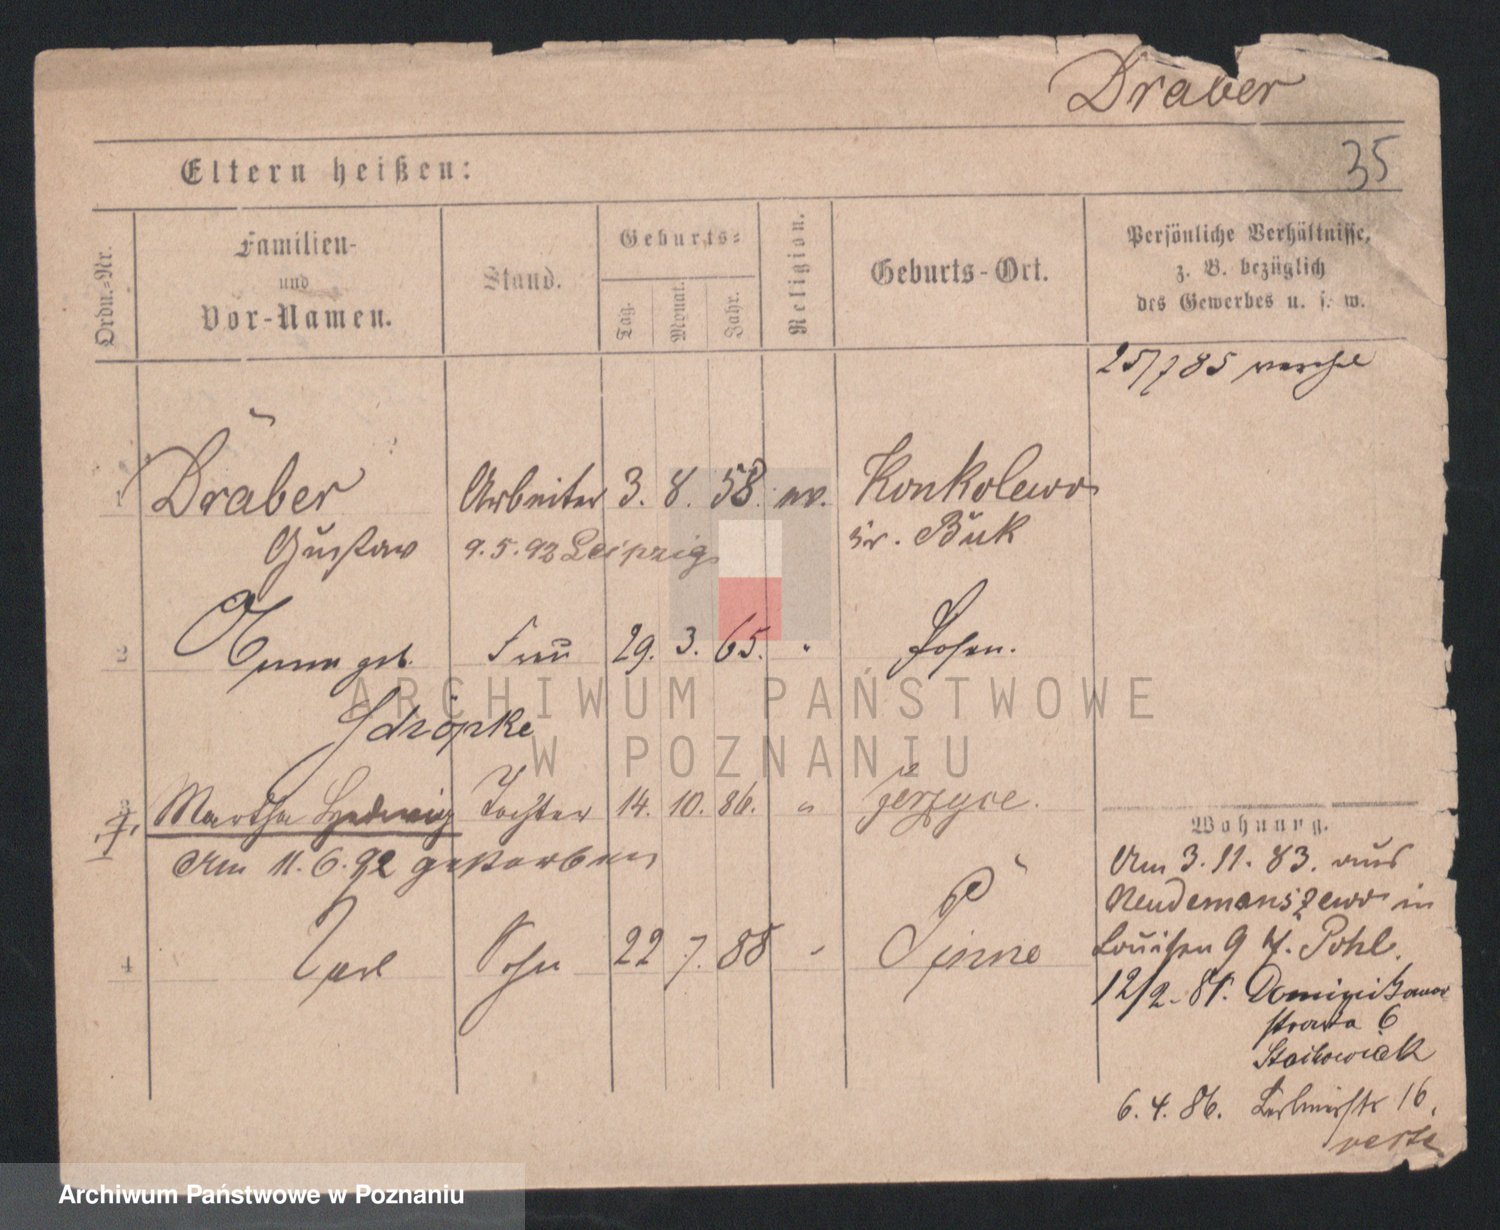 Draber
35
Eltern heißen:
Ordn.=Nr.
Familien-
und
Vor-Namen.
Stand.
Geburts=
Tag.
Monat.
Jahr.
Religion.
Geburts-Ort.
Persönliche Verhältnisse,
z. B. bezüglich
des Gewerbes u. s. w.
25/7 85
1 Dräber Arbeiter 3. 8. 58. ev. Konkolewo
Gustav 9. 5. 92 Leipzig Kr. Buk
2 Anna geb. Frau 29. 3. 65. " Posen.
Schröpke
3 Martha Hedwig Tochter 14. 10. 86. " Jerzyce.
Am 11. 6. 92 gestorben
4 Karl Sohn 22 7. 88 " Pinne
Wohnung.
Am 3. 11. 83. aus
Neudemanszewo in
Louisen 9 b. Pohl.
12/2. 85. Dominikaner
strasse 6
Stachowiak
6. 4. 86. Berlinerstr 16.
ARCHIWUM PAŃSTWOWE
W POZNANIU
Archiwum Państwowe w Poznaniu